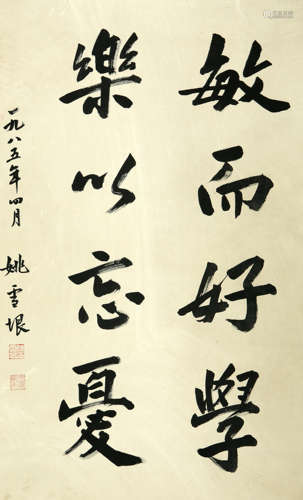 敏而好學
樂以忘憂
一九八五年四月
姚雪垠